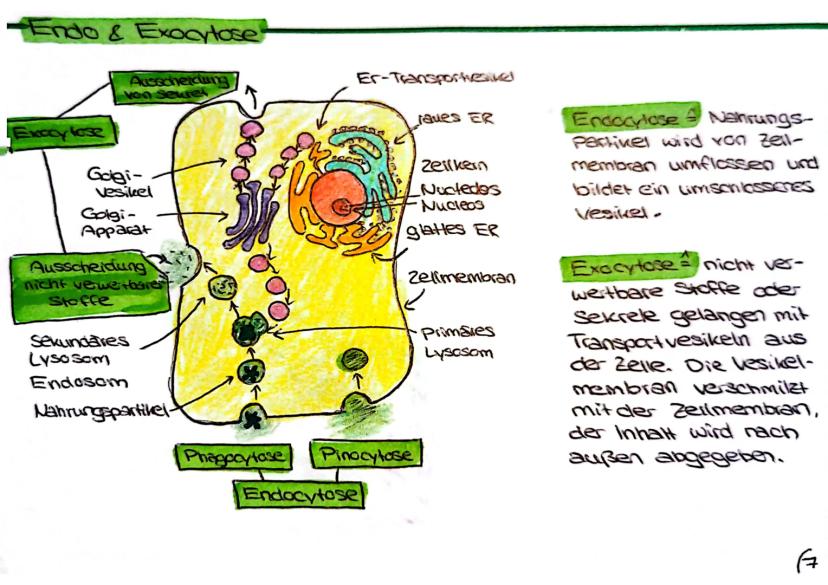 Endo & Exocytose
Ausscheidung
von Sekret
Exocytose
Golgi-
vesikel
Golgi-
Apparat
Ausscheidung
nicht verwertbarer
Stoffe
Sekundäres
Lysosom
Endosom
Nahrungspartikel
Er-Transportvesikel
raues ER
Zellkern
Nucleolos
Nucleos
glattes ER
Zellmembran
Primäres
Lysosom
Phagocytose
Pinocytose
Endocytose
Endocytose ≙ Nahrungs-
Partikel wird von Zell-
membran umflossen und
bildet ein umschlossenes
Vesikel.
Exocytose ≙ nicht ver-
wertbare Stoffe oder
Sekrete gelangen mit
Transportvesikeln aus
der Zelle. Die Vesikel-
membran verschmilzt
mit der Zellmembran,
der Inhalt wird nach
außen abgegeben.